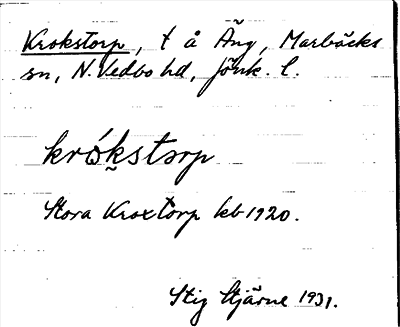 Krokstorp, t å Äng, Marbäcks
sn, N. Vedbo hd, Jönk. l.
krókstorp
Stora Kroxtorp kb 1920.
Stig Stjärne 1931.